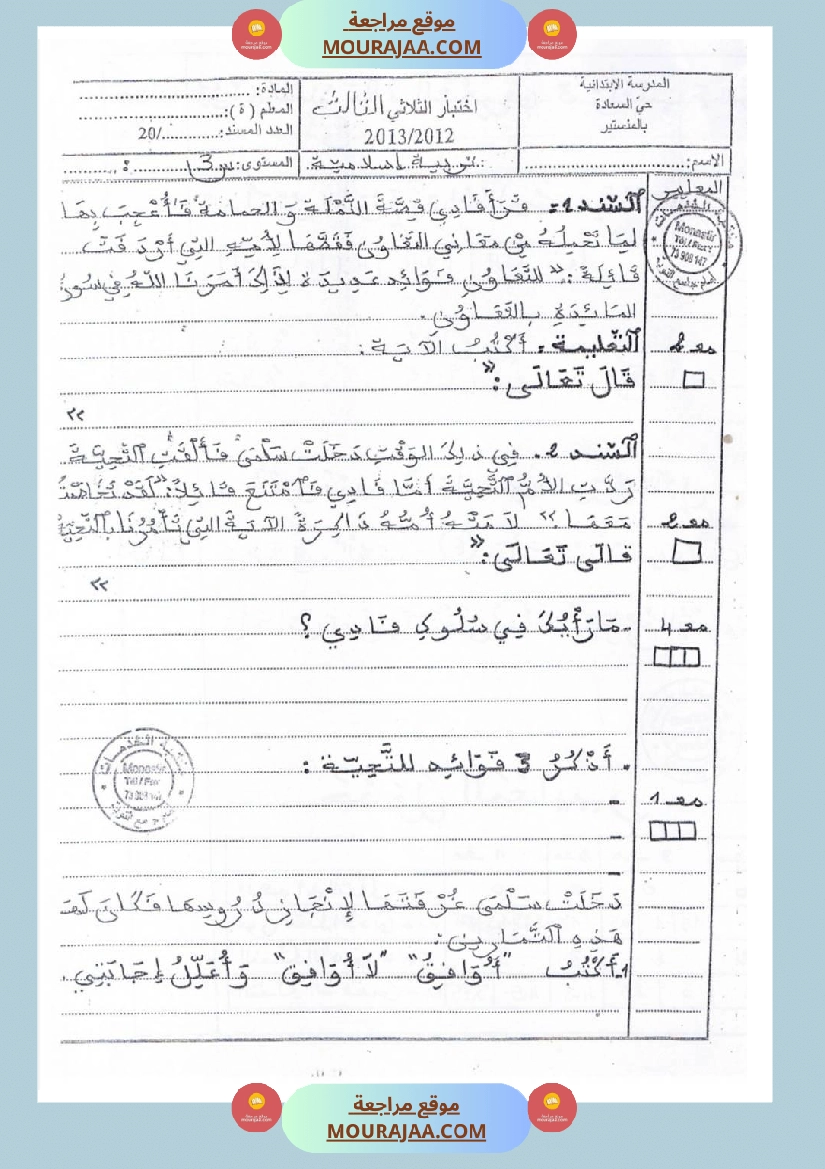 موقع مراجعة
MOURAJAA.COM
المدرسة الإبتدائية
حيّ السعادة
بالمنستير
اختبار الثلاثي الثالث
2013/2012
المادة:
المعلم (ة):
العدد المسند: /20
الاسم:
تربية إسلامية
المستوى: س3
المعايير
السّند 1: قَرَأَ فَادِي قِصَّةَ النَّمْلَةِ وَ الحمامة فَأُعْجِبَ بِهَا
لِمَا تَحْمِلُهُ مِنْ مَعَانِي التَّعَاوُنِ فَقَصَّهَا لِأُمِّهِ الَّتِي أَرْدَفَتْ
قَائِلَةً: "لِلتَّعَاوُنِ فَوَائِد عَدِيدَة لِذَلِكَ أَمَرَنَا اللّهُ فِي سُورَةِ
المَائِدَةِ بِالتَّعَاوُنِ.
التّعليمة: أَكْتُبُ الآيَةَ:
مع 2
قَالَ تَعَالَى: "
"
السّند 2. فِي ذَلِكَ الوَقْتِ دَخَلَتْ سَلْمَى فَأَلْقَتِ التَّحِيَّةَ
رَدَّتِ الأُمُّ التَّحِيَّةَ أَمَّا فَادِي فَامْتَنَعَ قَائِلاً: "لَقَدْ تَخَاصَمْتُ
مَعَهَا." لَامَتْهُ أُمُّهُ ذَاكِرَةً الآيَةَ الَّتِي تَأْمُرُنَا بِالتَّحِيَّةِ
مع 2
قَالَ تَعَالَى: "
"
- مَا رَأْيُكَ فِي سُلُوكِ فَادِي ؟
مع 4
. أَذْكُرُ 3 فَوَائِد للتَّحِيَّة :
مع 1
-
-
-
دَخَلَتْ سَلْمَى غُرْفَتَهَا لِإِنْجَازِ دُرُوسِهَا فَكَانَ
هَذِهِ التَّمَارِين:
1. أَكْتُبُ "أُوَافِقُ" "لاَ أُوَافِق" وَ أُعَلِّلُ إِجَابَتِي.
موقع مراجعة
MOURAJAA.COM